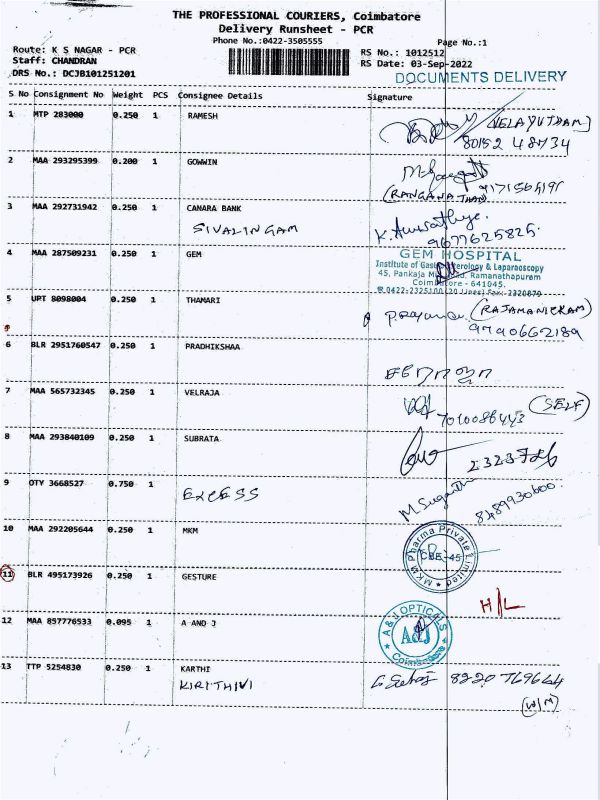 THE PROFESSIONAL COURIERS, Coimbatore
Delivery Runsheet - PCR
Phone No.:0422-3505555
Page No.:1
Route: K S NAGAR - PCR
RS No.: 1012512
Staff: CHANDRAN
RS Date: 03-Sep-2022
DRS No.: DCJB101251201
DOCUMENTS DELIVERY
S No Consignment No Weight PCS Consignee Details Signature
1 MTP 283000 0.250 1 RAMESH
(VELAYUTHAM)
80152 48734
2 MAA 293295399 0.200 1 GOWWIN
(RANGANATHAN)
3 MAA 292731942 0.250 1 CANARA BANK
SIVALINGAM
9677625825
4 MAA 287509231 0.250 1 GEM
GEM HOSPITAL
Institute of Gastroenterology & Laparoscopy
45, Pankaja Mill Road, Ramanathapuram
Coimbatore - 641045.
0422-2325100 (20 Lines) Fax: 2320879
5 UPT 8098004 0.250 1 THAMARI
(RAJAMANICKAM)
9790662189
6 BLR 2951760547 0.250 1 PRADHIKSHAA
7 MAA 565732345 0.250 1 VELRAJA
(SELF)
7010088443
8 MAA 293840109 0.250 1 SUBRATA
9 OTY 3668527 0.750 1
EXCESS
8489930600
10 MAA 292205644 0.250 1 MKM
MKM Pharma Private Limited
CBE-45
11 BLR 495173926 0.250 1 GESTURE
H/L
12 MAA 857776533 0.095 1 A AND J
A&J OPTICALS
A&J
Coimbatore
13 TTP 5254830 0.250 1 KARTHI
KIRITHIVI
8220 769664
(W/M)